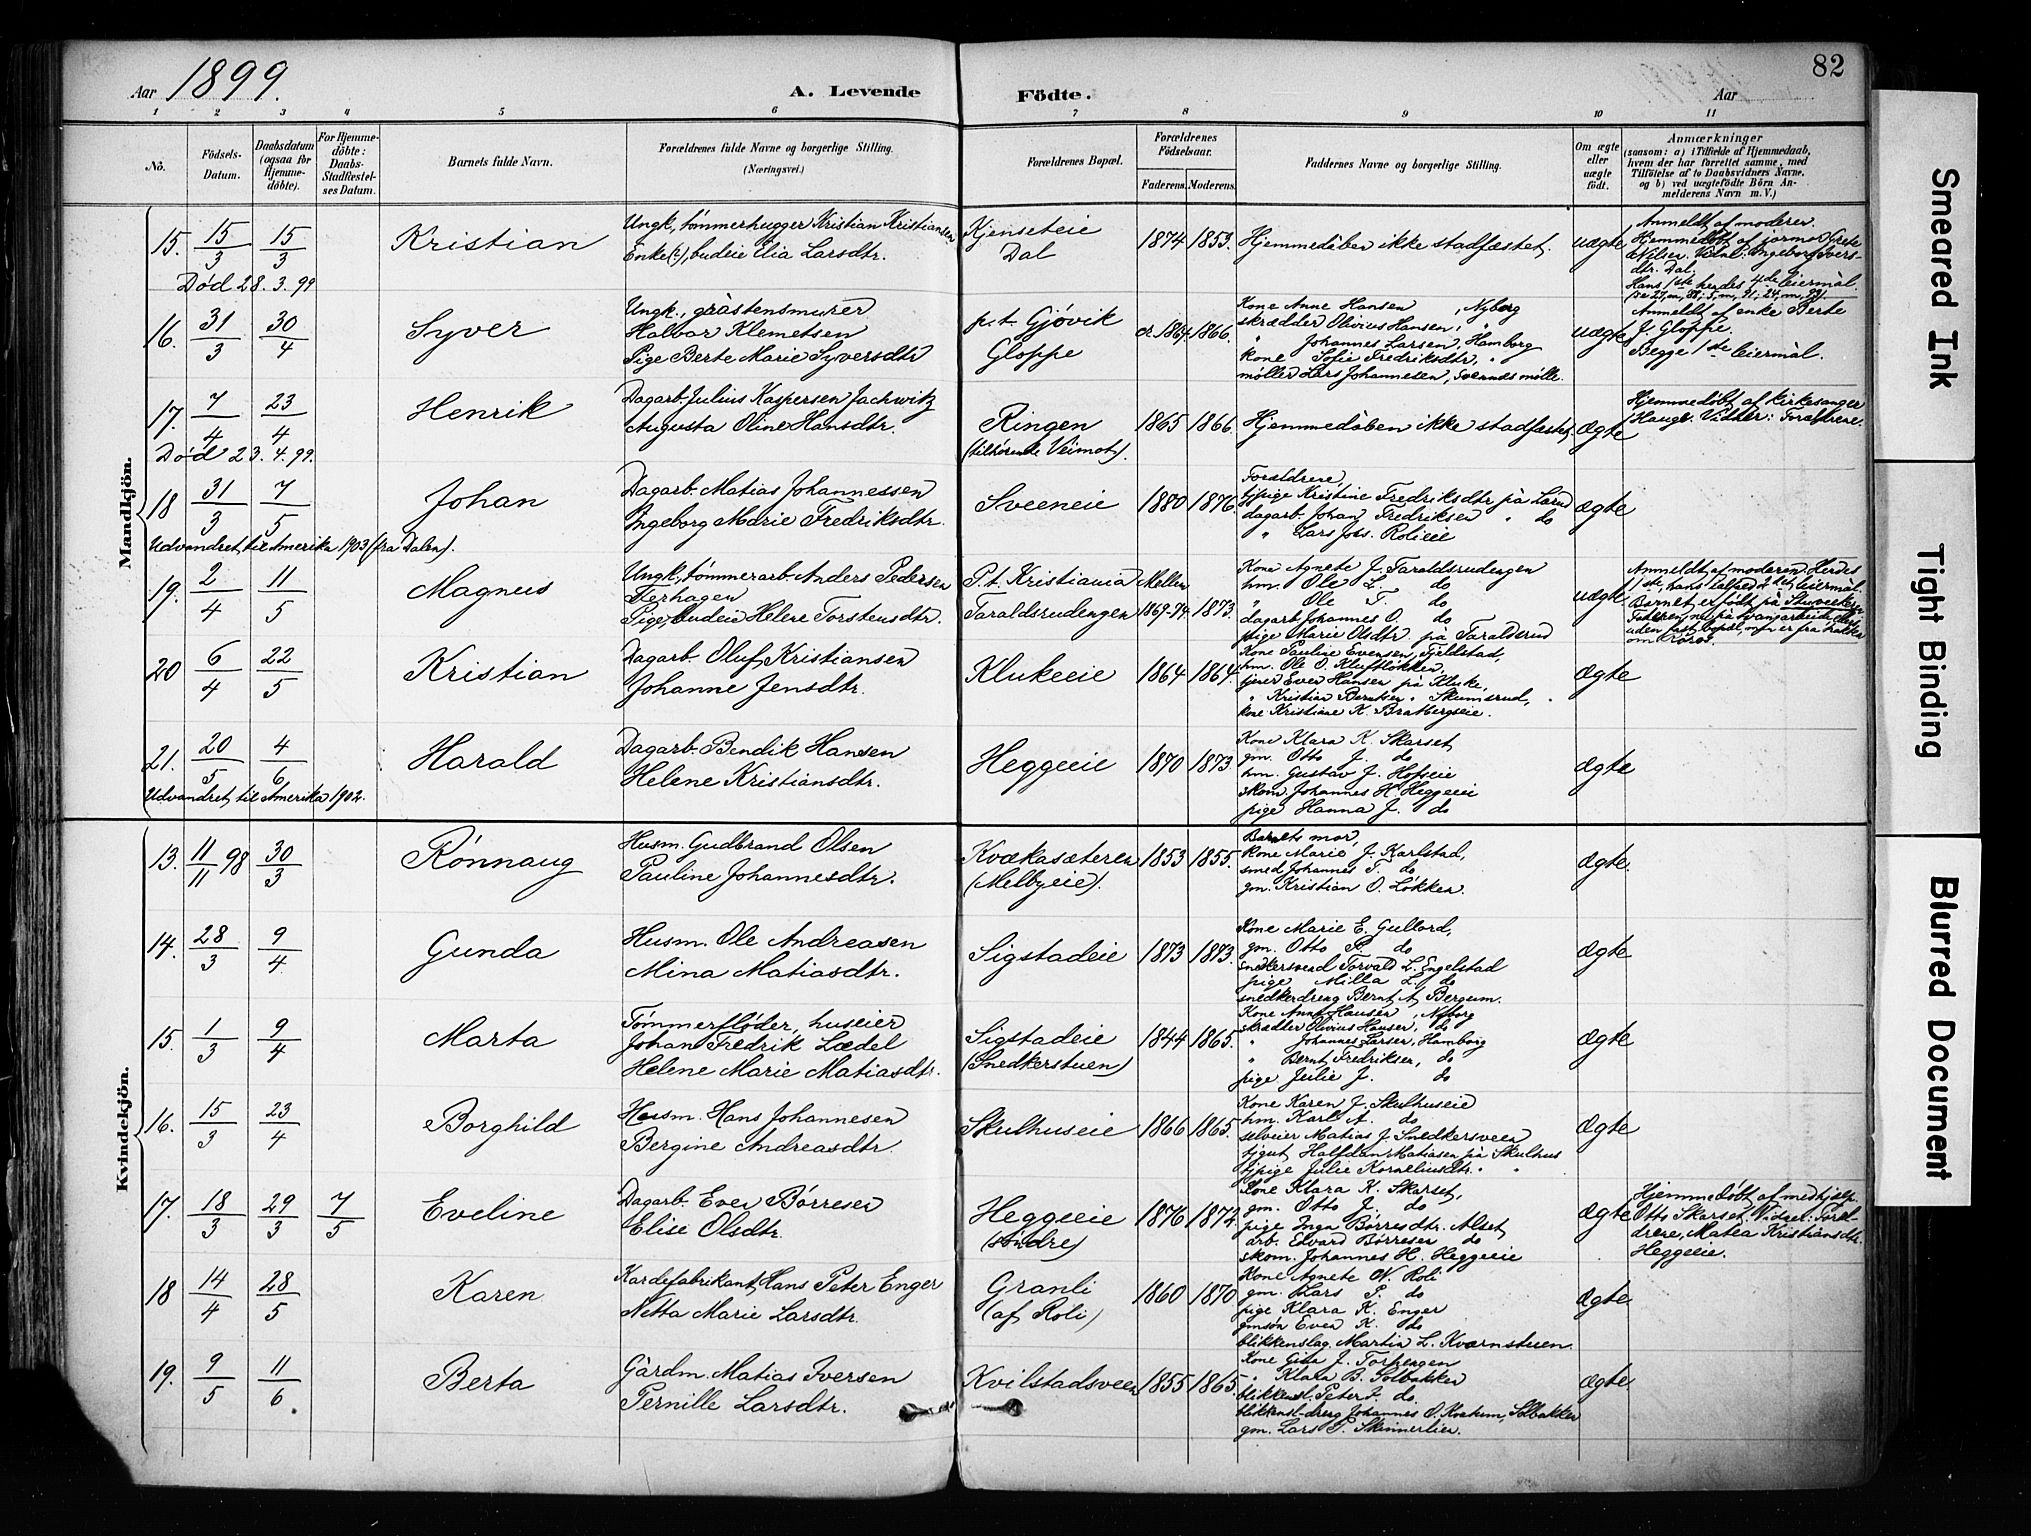 Aar 1899. A. Levende Födte. Aar 82
1 2 3 4 5 6 7 8 9 10 11
No.
Födsels-Datum.
Daabsdatum (ogsaa for Hjemme-döbte).
For Hjemme-döbte: Daabs-Stadfæstel-ses Datum.
Barnets fulde Navn.
Forældrenes fulde Navne og borgerlige Stilling.
(Næringsvei.)
Forældrenes Bopæl.
Forældrenes Födselsaar.
Faderens. Moderens.
Faddernes Navne og borgerlige Stilling.
Om ægte eller uægte födt.
Anmærkninger
(saasom: a) i Tilfælde af Hjemmedaab,
hvem der har forrettet samme, med
Tilföielse af to Daabsvidners Navne,
og b) ved uægtefödte Börn An-
melderens Navn m. V.)
Mandkjön.
15. 15/3 15/3 Kristian
Ungk., tømmerhugger Kristian Kristiansen
Enke(?), budeie Elia Larsdtr.
Kjenseteie
Dal
1874 1853. Hjemmedåben ikke stadfæstet. uægte
Anmeldt af moderen.
Hjemmedøbt af jormor Grete
Nilsen. Vidnl: Ingeborg Ivers-
dtr. Dal.
Hans 1ste hendes 4de leiermål.
Død 28.3.99
16. 31/3 30/4 Syver
Ungk., gråstensmurer
Halvor Klemetsen
Pige Berte Marie Syversdtr
p.t. Gjøvik
Gloppe
ca. 1864. 1866.
Kone Anne Hansen, Nyborg
skrædder Olivius Hansen, "
" Johannes Larsen, Hamborg
kone Sofie Fredriksdtr, "
møller Lars Johannesen, Sveendsmølle.
uægte
Anmeldt af enke Berte
J. Gloppe.
Begge 1ste leiermål.
17. 7/4 23/4 Henrik
Dagarb. Julius Kaspersen Jachwitz
Augusta Oline Hansdtr.
Ringen
(tilhørende Veimot).
1865 1866. Hjemmedåben ikke stadfæstet. ægte
Hjemmedøbt af kirkesanger
Haugli. Vidner: Forældrene.
Død 23.4.99.
18 31/3 7/5 Johan
Dagarb. Matias Johannessen
Ingeborg Marie Fredriksdtr.
Sveeneie 1880 1876.
Forældrene,
tjpige Kristine Fredriksdtr på Lund
dagarb. Johan Fredriksen " do
" Lars Johs. Rolieie
ægte
Udvandret til Amerika 1903 (fra Dalen).
19. 2/4 11/5 Magnus
Ungk., tømmerarb. Anders Pedersen
Sterhagen
Pige, budeie Helene Torstensdtr.
P.t. Kristiania
Taraldsrudengen
Mellem
1869-74 1873.
Kone Agnete J. Taraldsrudengen
hm. Ole L. do
" Ole T. do
dagarb Johannes O. do
pige Marie Olsdtr. på Taraldsrud
uægte
Anmeldt af moderen. Hendes
1ste, hans ialfald 2det leiermål.
Barnet er født på Stuveskjen
om Røros.
20 6/4 22/5 Kristian
Dagarb. Oluf Kristiansen
Johanne Jensdtr.
Klukeeie 1864 1864.
Kone Pauline Evensen, Fjeldstad,
hm. Ole O. Kluftløkken,
tjener Even Hansen på Kluke,
" Kristian Berntsen " Skumsrud,
kone Kristiane K. Bratbergseie.
ægte
21. 20/5 4/6 Harald
Dagarb. Bendik Hansen
Helene Kristiansdtr.
Heggeeie 1870 1873.
Kone Klara K. Skarset
gm. Otto J. do
hm. Gustav J. Hofseie
skom. Johannes H. Heggeeie
pige Hanna J. do
ægte
Udvandret til Amerika 1902.
Kvindekjön.
13. 11/11 98 30/3 Rønnaug
Husm. Gudbrand Olsen
Pauline Johannesdtr.
Kvækasæteren
(Melbyeie).
1853 1855.
Barnets mor,
kone Marie J. Karlstad,
smed Johannes T. do
gm. Kristian O. Løkken.
ægte.
14. 28/3 9/4 Gunda
Husm. Ole Andreasen
Mina Matiasdtr.
Sigstadeie 1873 1873.
Kone Marie E. Gullord,
gm. Otto P. do
snedkersvend Torvald L. Engelstad
pige Milla L. do
snedkerdreng Bernt A. Bergum.
ægte
15. 1/3 9/4 Marta
Tømmerfløder, huseier
Johan Fredrik Lædel
Helene Marie Matiasdtr.
Sigstadeie
(Snedkerstuen)
1844 1865.
Kone Anne Hansen, Nyborg
skrædder Olivius Hansen, do
" Johannes Larsen, Hamborg
" Bernt Fredriksen, do
pige Julie J. do
ægte
16. 15/3 23/4 Borghild
Husm. Hans Johannesen
Bergine Andreasdtr.
Skulhuseie 1866 1865.
Kone Karen J. Skulhuseie
hm. Karl A. do
selveier Matias J. Snedkersveen
tjgut Halfdan Matiasen på Skulhus
tjpige Julie Korneliusdtr. " "
ægte
17. 18/3 29/3 7/5 Eveline
Dagarb. Even Børresen
Elise Olsdtr.
Heggeeie
(søndre)
1876 1872.
Kone Klara K. Skarset,
gm. Otto J. do
pige Inga Børresdtr. Alset
arb. Edvard Børresen do
skom. Johannes H. Heggeeie
ægte
Hjemmedøbt af medhjelp.
Otto Skarset. Vidner: Foræl-
drene, Matea Kristiansdtr.
Heggeeie.
18 14/4 28/5 Karen
Kardefabrikant Hans Peter Enger
Netta Marie Larsdtr.
Granli
(af Roli)
1860 1870
Kone Agnete N. Roli
gm. Lars P. do
pige Klara K. Enger
gmsøn Even K. do
blikkenslag. Martin L. Kværnstuen.
ægte.
19. 9/5 11/6. Berta
Gårdm. Matias Iversen
Pernille Larsdtr.
Kvilstadsveen 1855 1865.
Kone Gina J. Torbergen
" Klara B. Solbakken
blikkensl. Peter J. do.
blikkensl-dreng Johannes O. Kvakum, Solbakken
gm. Lars P. Skinnerlien.
ægte.
Smeared Ink
Tight Binding
Blurred Document